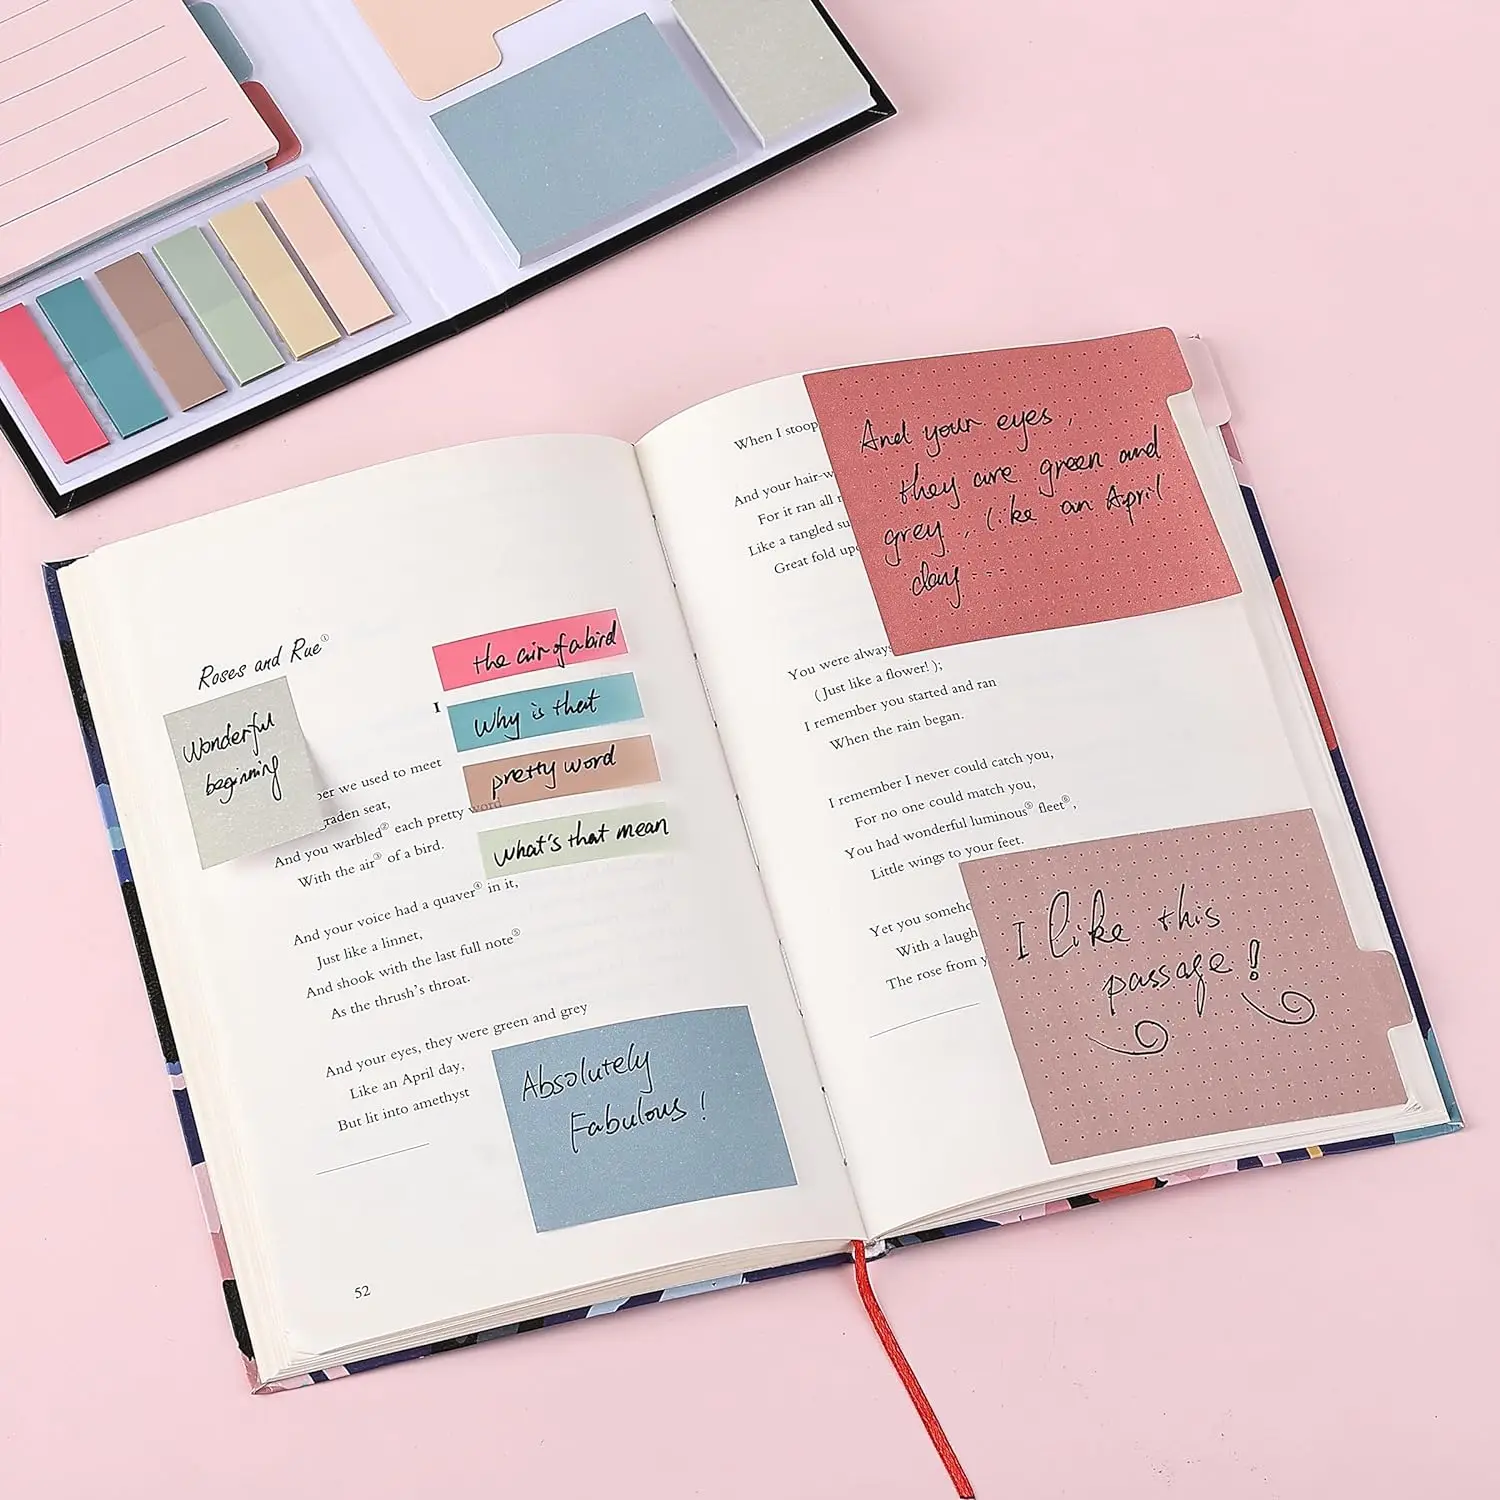 Roses and Rue①
I
Wonderful
beginning
the air of a bird
Why is that
pretty word
what's that mean
we used to meet
graden seat,
And you warbled② each pretty word
With the air③ of a bird.
And your voice had a quaver④ in it,
Just like a linnet,
And shook with the last full note⑤
As the thrush's throat.
And your eyes, they were green and grey
Like an April day,
But lit into amethyst
Absolutely
Fabulous!
52
When I stoop
And your hair
For it ran all
Like a tangled
Great fold
And your eyes,
they are green and
grey, like an April
day...
You were always
(Just like a flower!);
I remember you started and ran
When the rain began.
I remember I never could catch you,
For no one could match you,
You had wonderful luminous⑤ fleet⑥,
Little wings to your feet.
Yet you
With a laugh
The rose from
I like this
passage!